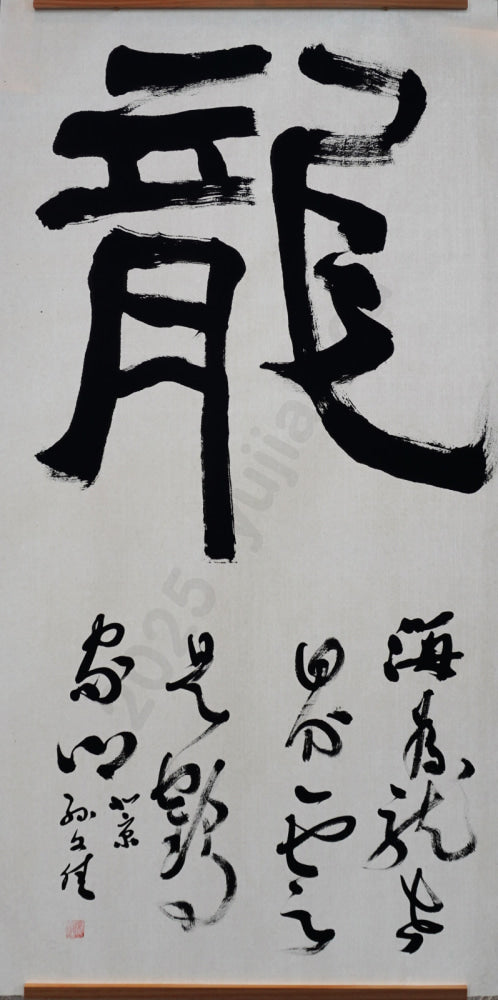 龍
海為龍世
界雲
是鶴
家鄉
北京
孫文佳
2025 yujia